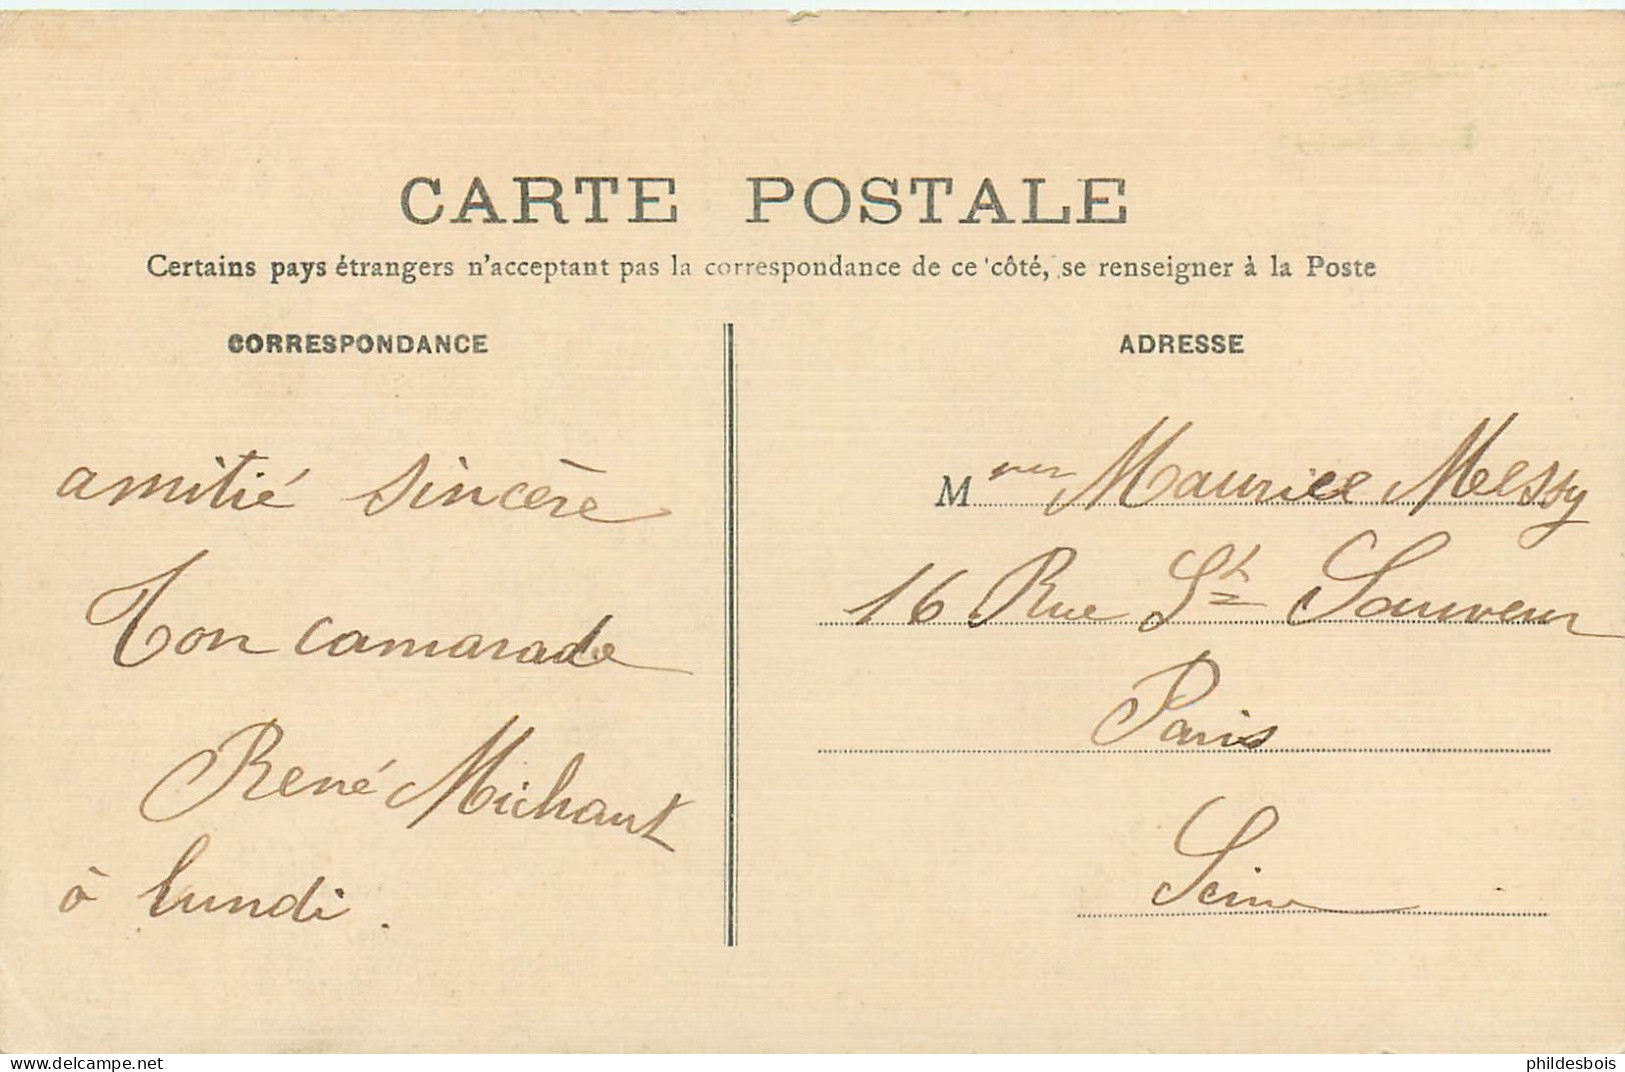 CARTE POSTALE
Certains pays étrangers n'acceptant pas la correspondance de ce côté, se renseigner à la Poste
CORRESPONDANCE
amitié sincère
Ton camarade
René Michaut
à lundi.
ADRESSE
M Maurice Messy
16 Rue St Sauveur
Paris
Seine
delcampe.net
phildesbois